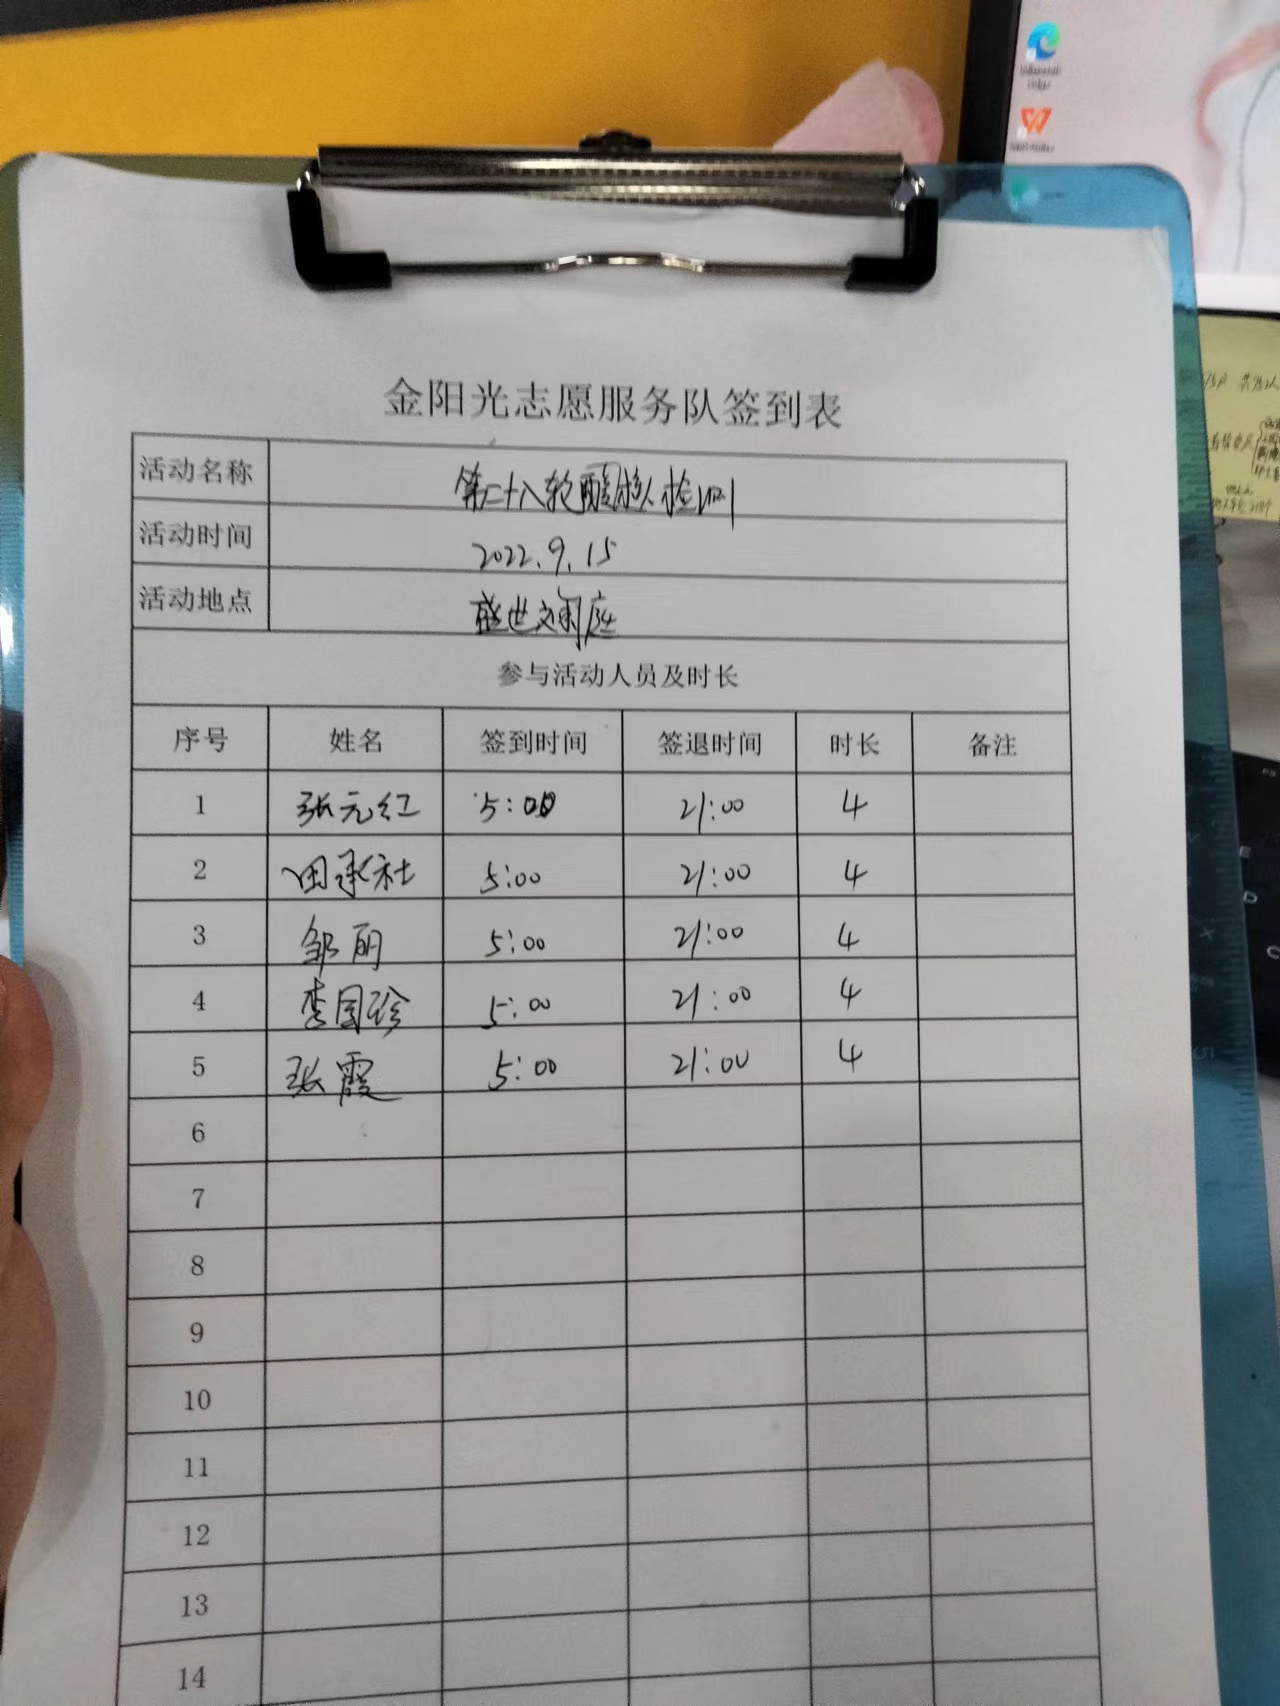 金阳光志愿服务队签到表
活动名称 第二十八轮酸核检测
活动时间 2022.9.15
活动地点 盛世闲庭
参与活动人员及时长
序号 姓名 签到时间 签退时间 时长 备注
1 张元红 5:00 21:00 4
2 田承社 5:00 21:00 4
3 邹丽 5:00 21:00 4
4 李国珍 5:00 21:00 4
5 张霞 5:00 21:00 4
6
7
8
9
10
11
12
13
14